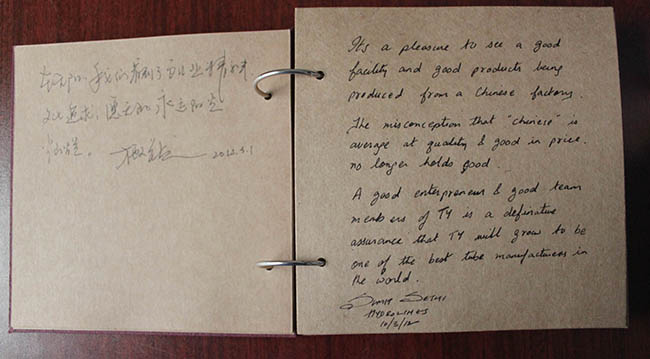 在这里，我们看到了
文化追求，
2012.3.1
It's a pleasure to see a good
facility and good products being
produced from a Chinese factory.
The misconception that "chinese" is
average at quality & good in price.
no longer holds good.
A good enterpreneur & good team
members of TY is a definative
assurance that TY will grow to be
one of the best tube manufacturers in
the world.
Sumit Sethi
HYDROLINES
10/3/12